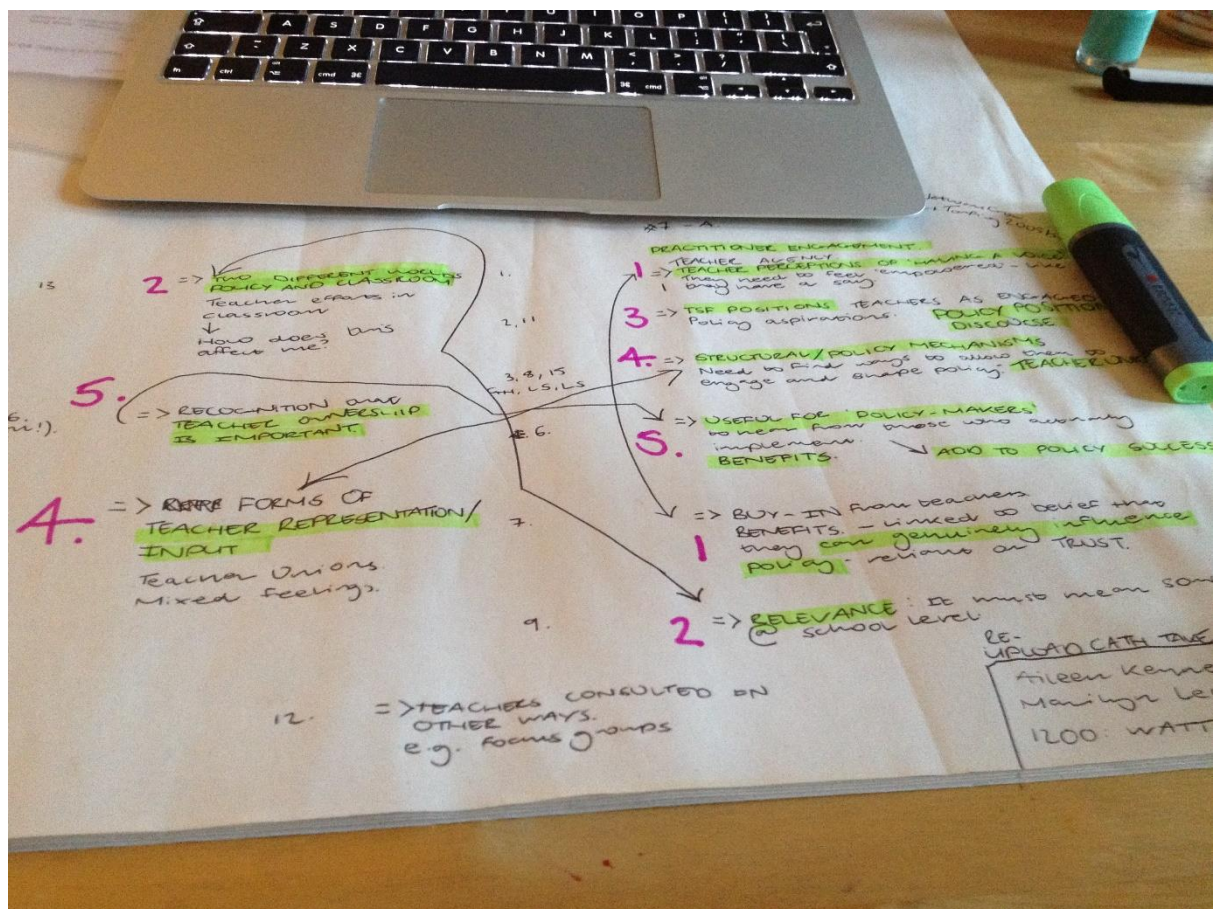 A S D F G H J K L
Z X C V B N M
fn ctrl cmd ⌘ ⌘ cmd
13
2 => TWO DIFFERENT WORLDS
POLICY AND CLASSROOM
Teacher efforts in
classroom
↓
How does this
affect me?
5.
=> RECOGNITION that
TEACHER OWNERSHIP
IS IMPORTANT.
4. => FORMS OF
TEACHER REPRESENTATION/
INPUT
Teacher Unions.
Mixed feelings.
12. => TEACHERS CONSULTED ON
OTHER WAYS.
e.g. Focus groups
1.
2, 11
3, 8, 15
6.
7.
9.
PRACTITIONER ENGAGEMENT
TEACHER AGENCY
1 => TEACHER PERCEPTIONS OF HAVING A VOICE
They need to feel 'empowered' - like
they have a say
3 => TSF POSITIONS TEACHERS AS ENGAGED
Policy aspirations. POLICY POSITION
DISCOURSE
4. => STRUCTURAL/POLICY MECHANISMS
Need to find ways to allow them to
engage and shape policy. TEACHER
5. => USEFUL FOR 'POLICY-MAKERS'
to hear from those who actually
implement.
BENEFITS. ADD TO POLICY SUCCESS
1 => BUY-IN from teachers
BENEFITS. - Linked to belief that
they can genuinely influence
policy - reliant on TRUST.
2 => RELEVANCE: It must mean
@ school level.
RE-
UPLOAD CATH
Aileen
Marilyn
1200: WATT